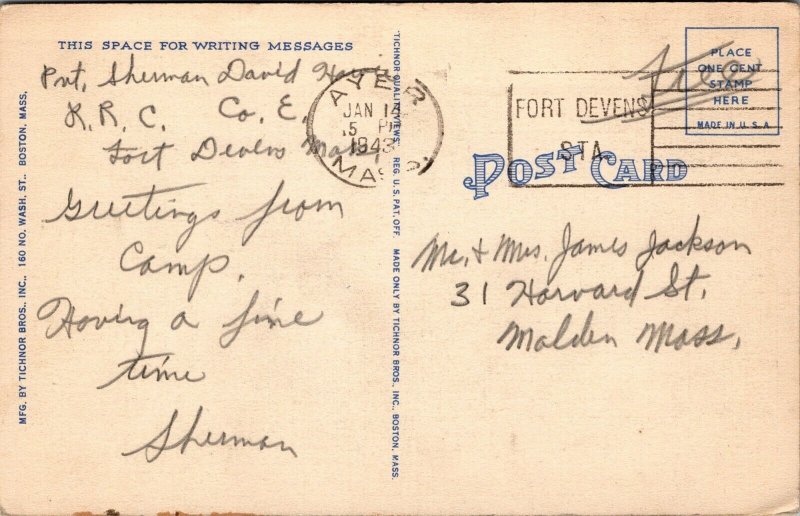 THIS SPACE FOR WRITING MESSAGES
Pvt. Sherman David
R.R.C. Co. E.
Fort Devens Mass
Greetings from
Camp.
Having a fine
time
Sherman
MFG. BY TICHNOR BROS., INC., 160 NO. WASH. ST., BOSTON, MASS.
TICHNOR QUALITY VIEWS. REG. U.S. PAT. OFF. MADE ONLY BY TICHNOR BROS., INC., BOSTON, MASS.
AYER
JAN 14
5 P
1943
MASS.
FORT DEVENS
STA
Free
PLACE
ONE CENT
STAMP
HERE
MADE IN U.S.A.
POST CARD
Mr. + Mrs. James Jackson
31 Harvard St.
Malden Mass.